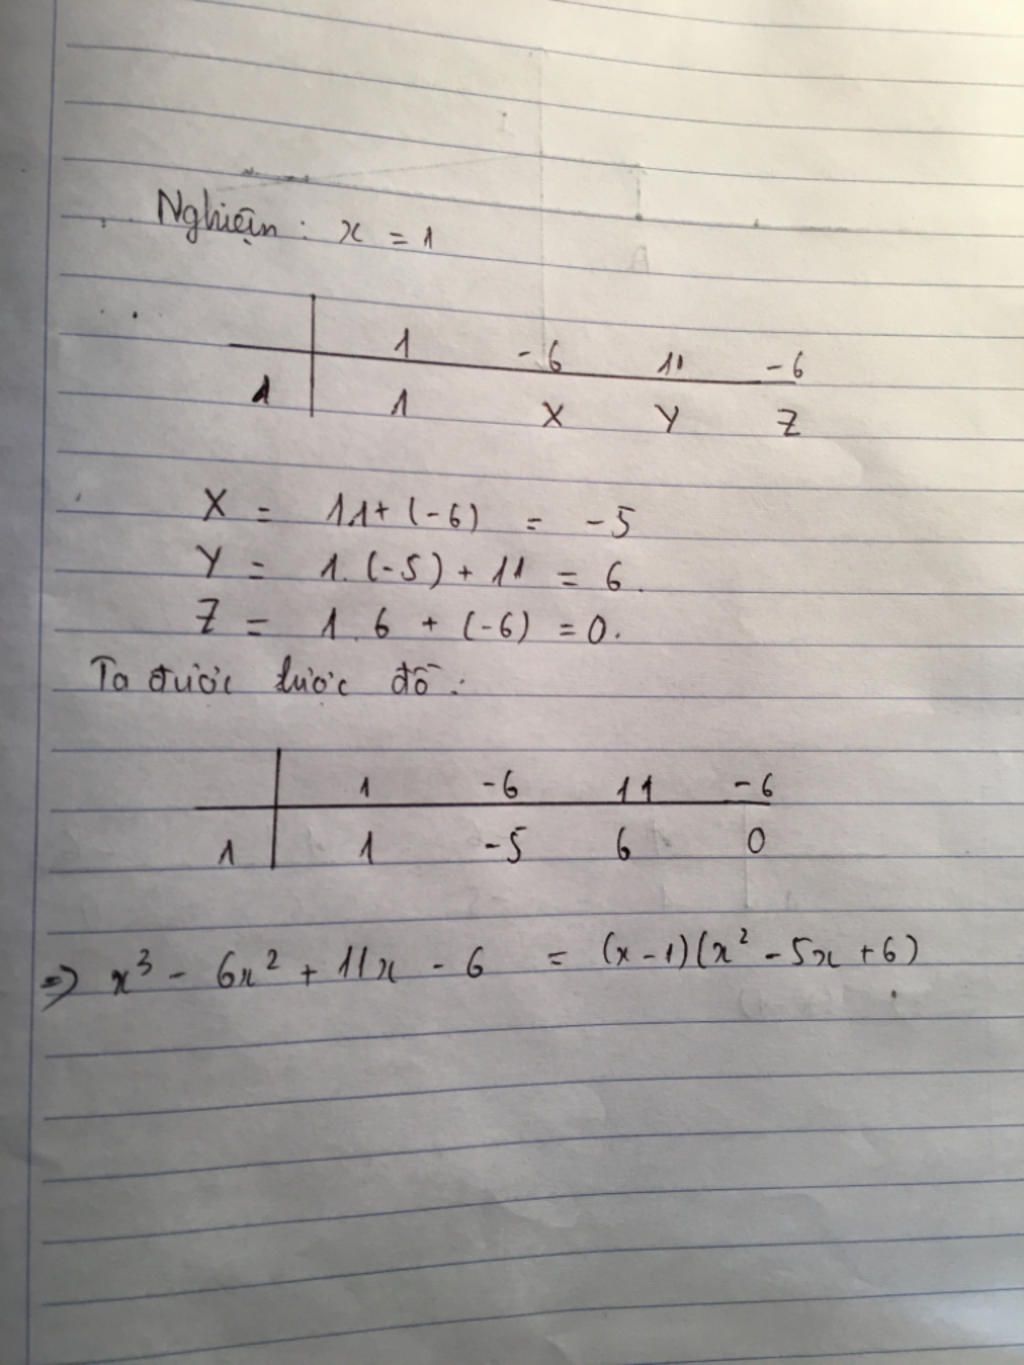 Nghiệm : x = 1
1 -6 11 -6
1 1 X Y Z
X = 1.1+ (-6) = -5
Y = 1. (-5) + 11 = 6.
Z = 1.6 + (-6) = 0.
Ta được lược đồ :
1 -6 11 -6
1 1 -5 6 0
=> x³ - 6x² + 11x - 6 = (x-1)(x² - 5x + 6)